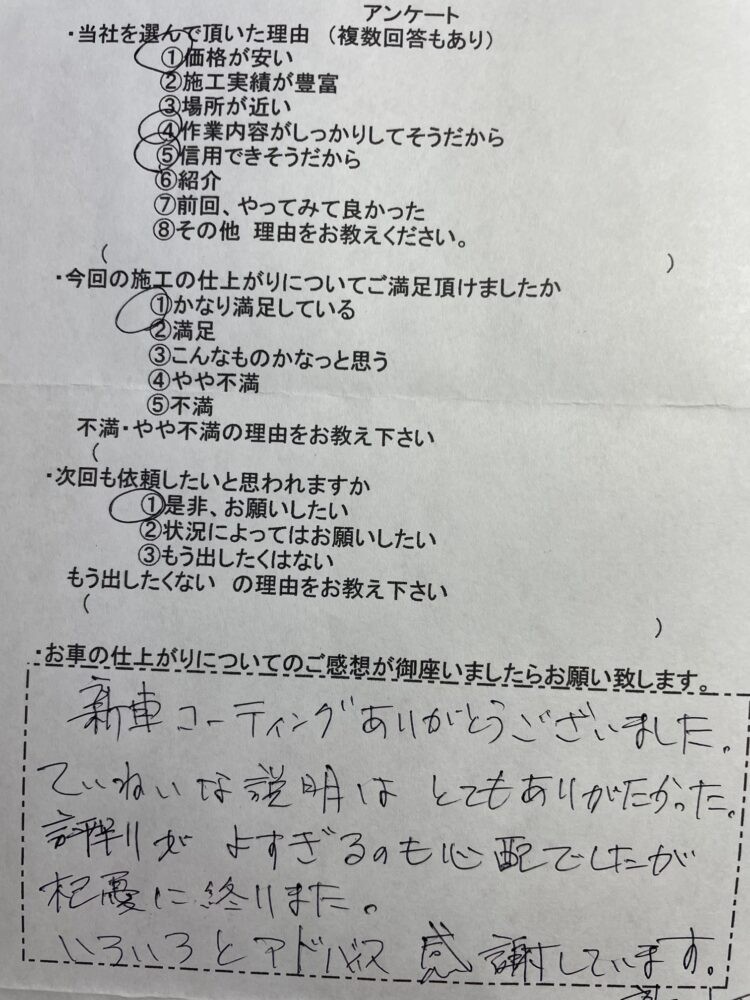 アンケート
・当社を選んで頂いた理由 (複数回答もあり)
①価格が安い
②施工実績が豊富
③場所が近い
④作業内容がしっかりしてそうだから
⑤信用できそうだから
⑥紹介
⑦前回、やってみて良かった
⑧その他 理由をお教えください。
( )
・今回の施工の仕上がりについてご満足頂けましたか
①かなり満足している
②満足
③こんなものかなっと思う
④やや不満
⑤不満
不満・やや不満の理由をお教え下さい
(
・次回も依頼したいと思われますか
①是非、お願いしたい
②状況によってはお願いしたい
③もう出したくはない
もう出したくない の理由をお教え下さい
( )
・お車の仕上がりについてのご感想が御座いましたらお願い致します。
新車コーティングありがとうございました。
ていねいな説明はとてもありがたかった。
評判がよすぎるのも心配でしたが
杞憂に終りまた。
いろいろとアドバイス感謝しています。